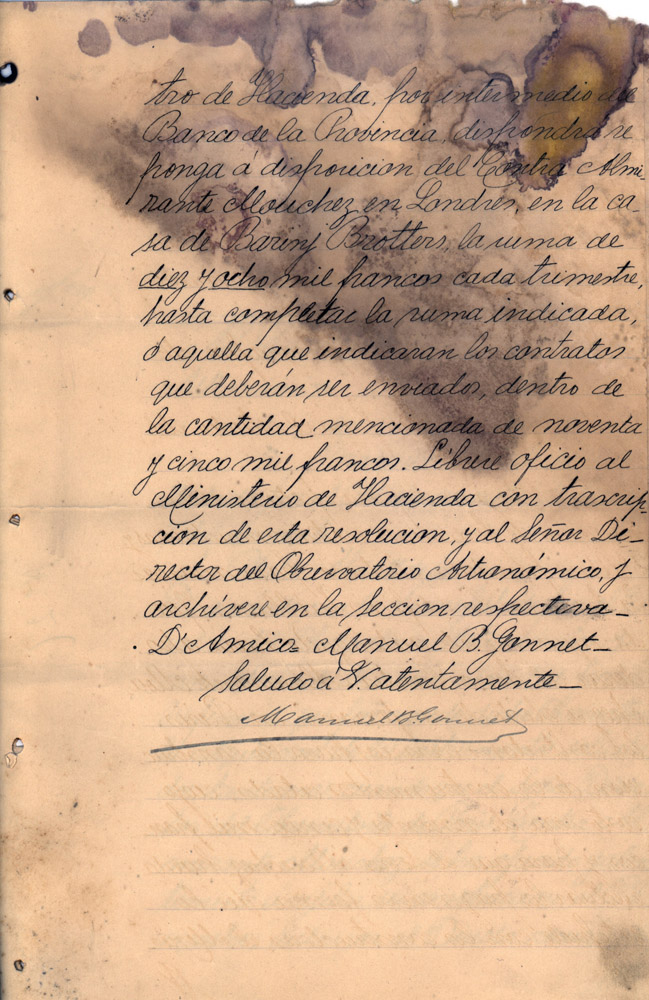 tro de Hacienda, por intermedio del
Banco de la Provincia, dispondrá se
ponga á disposicion del Contra Almi-
rante Mouchez en Londres, en la ca-
sa de Baring Brotters, la suma de
diez y ocho mil francos cada trimestre,
hasta completar la suma indicada,
ó aquella que indicaran los contratos
que deberán ser enviados, dentro de
la cantidad mencionada de noventa
y cinco mil francos. Líbrese oficio al
Ministerio de Hacienda con trascrip-
ción de esta resolucion, y al Señor Di-
rector del Observatorio Astronómico, y
archívese en la Seccion respectiva_
D'Amico= Manuel B. Gonnet_
Saludo á V. atentamente_
Manuel B. Gonnet